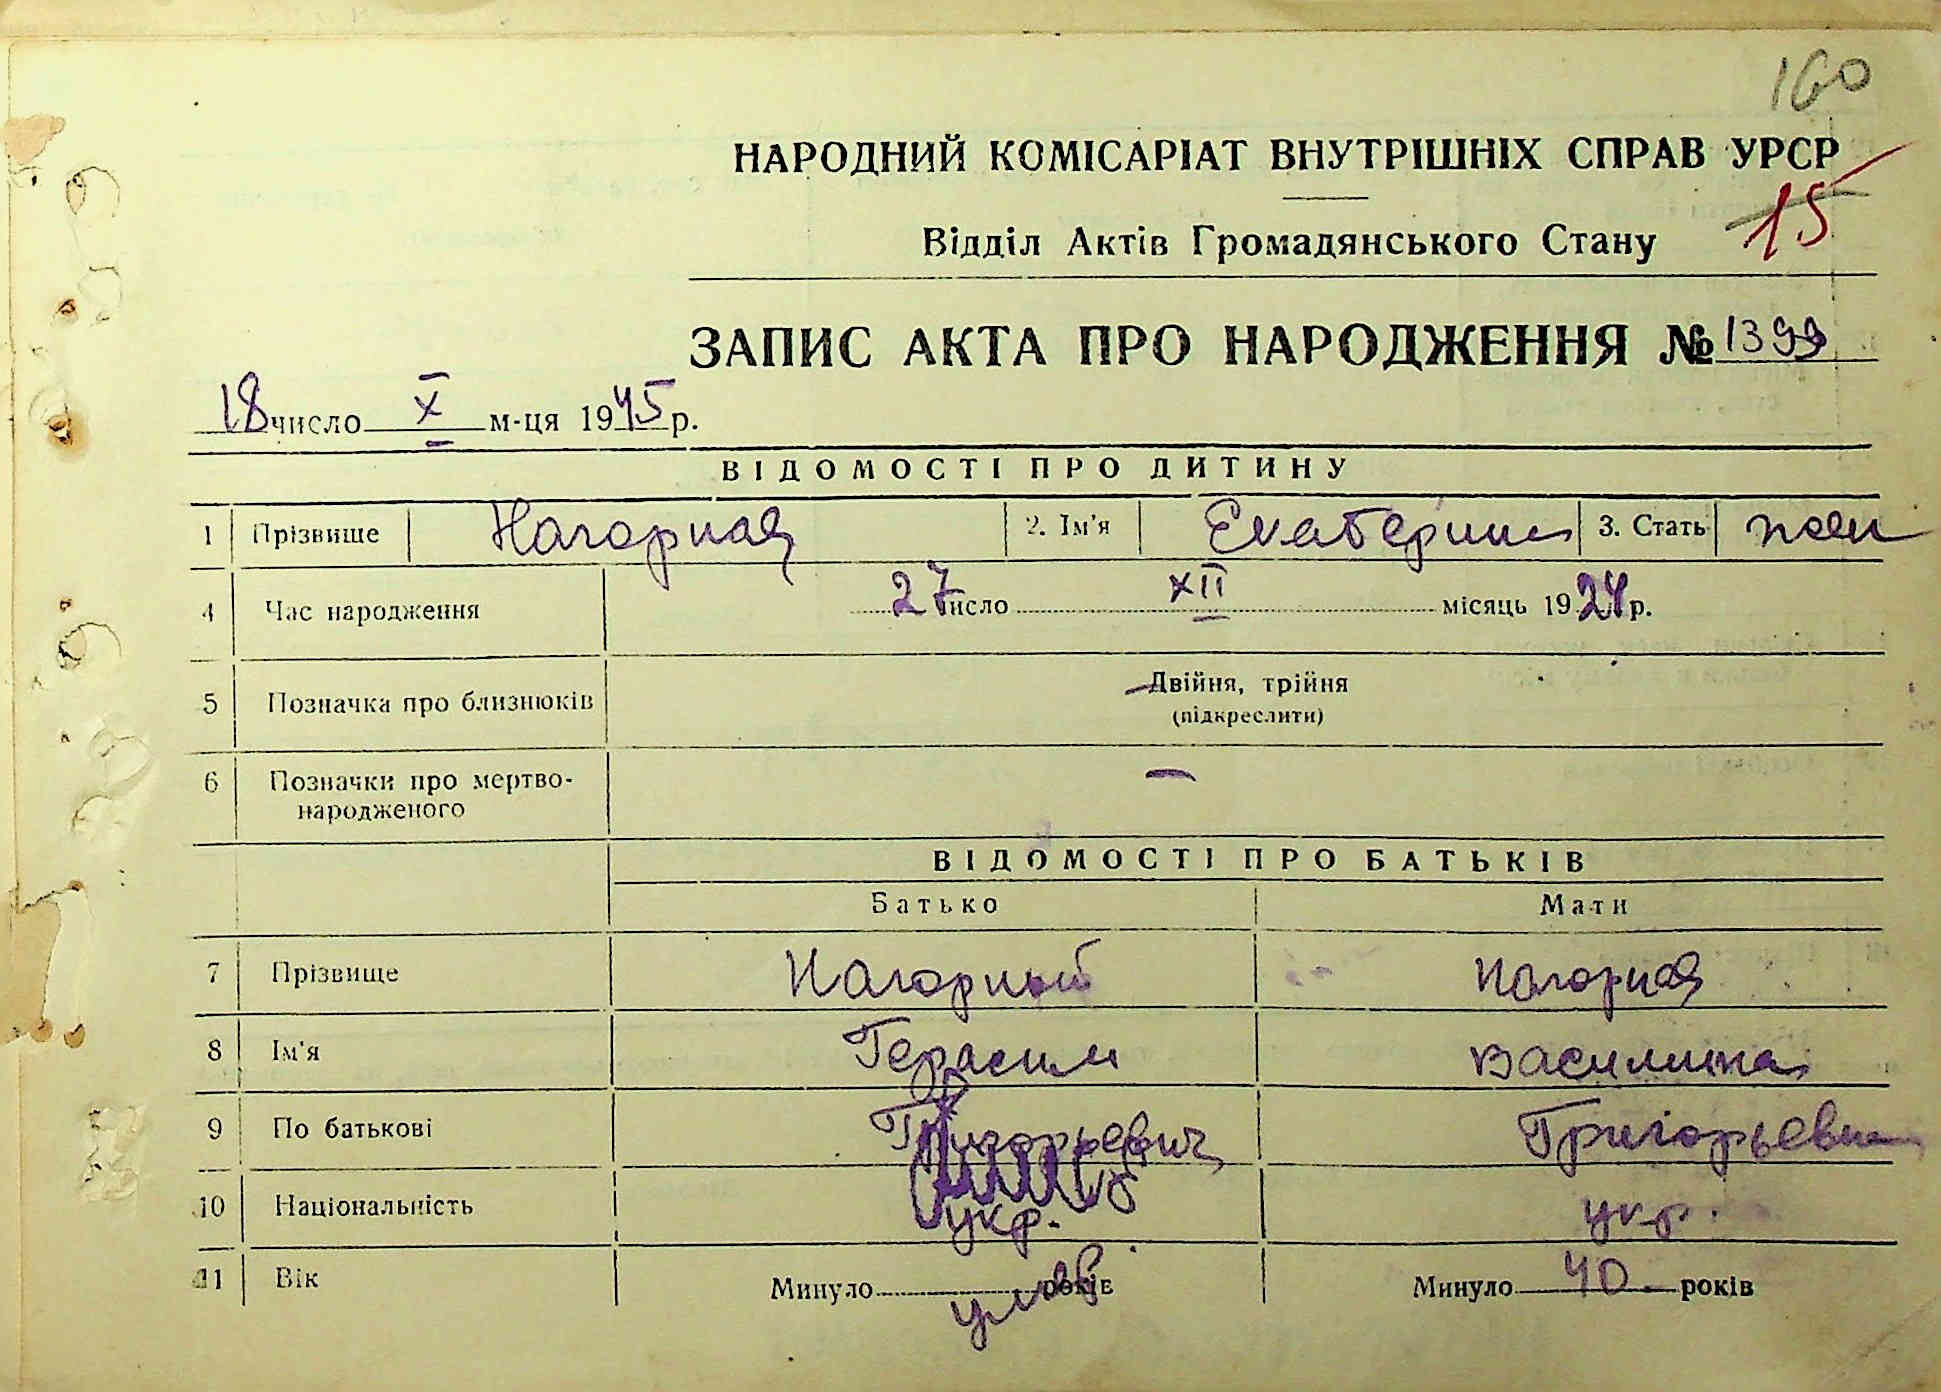 160
НАРОДНИЙ КОМІСАРІАТ ВНУТРІШНІХ СПРАВ УРСР
15
Відділ Актів Громадянського Стану
ЗАПИС АКТА ПРО НАРОДЖЕННЯ № 1399
18 число X м-ця 1945 р.
ВІДОМОСТІ ПРО ДИТИНУ
1 Прізвище Нагорная 2. Ім'я Екатерина 3. Стать жен
4 Час народження 27 число XII місяць 1924 р.
5 Позначка про близнюків Двійня, трійня
(підкреслити)
6 Позначки про мертво-
народженого —
ВІДОМОСТІ ПРО БАТЬКІВ
Батько Мати
7 Прізвище Нагорный Нагорная
8 Ім'я Герасим Василина
9 По батькові Григорьевич Григорьевна
10 Національність укр. укр.
11 Вік Минуло умер років Минуло 40 років